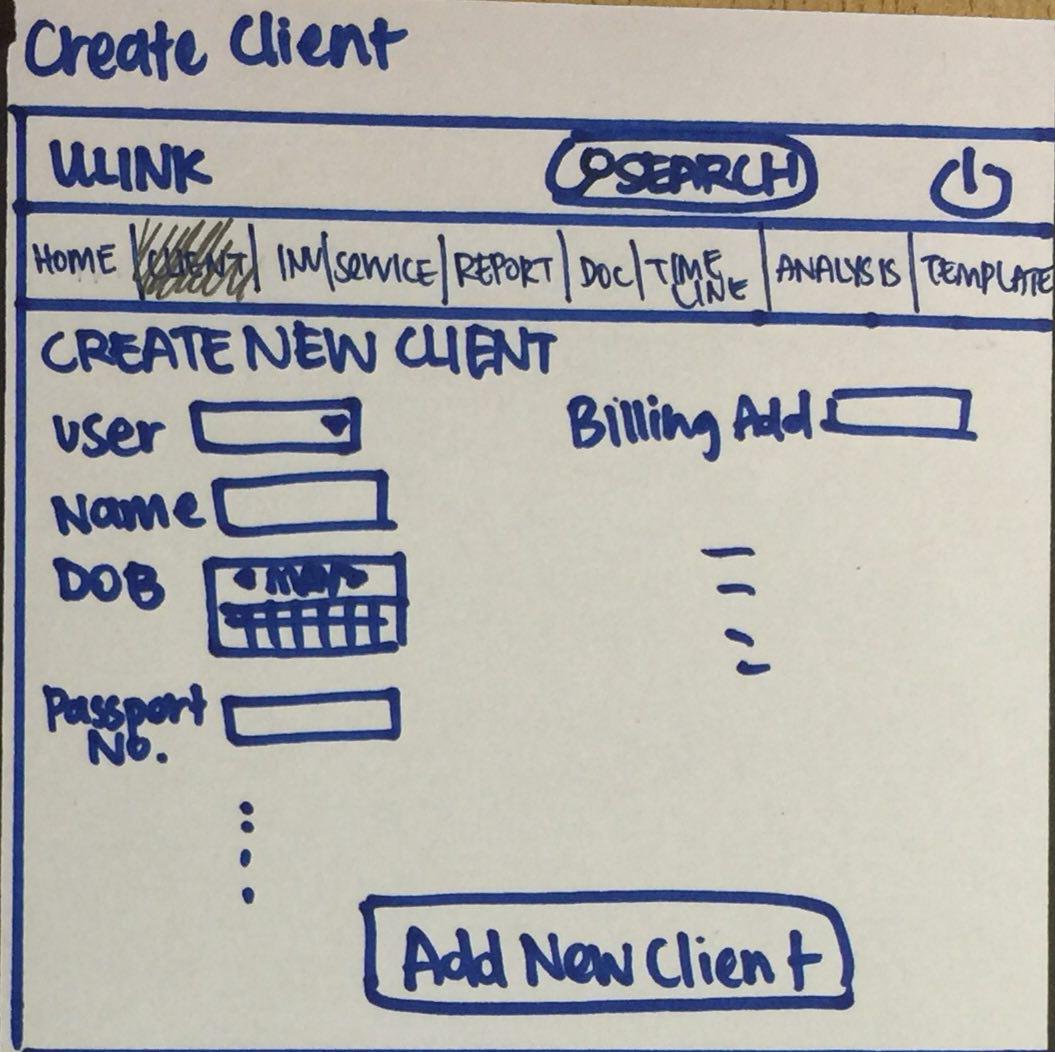 Create Client
ULINK SEARCH
HOME | CLIENT | INV | SERVICE | REPORT | DOC | TIME LINE | ANALYSIS | TEMPLATE
CREATE NEW CLIENT
User
Billing Add
Name
DOB
May
Passport
No.
Add New Client